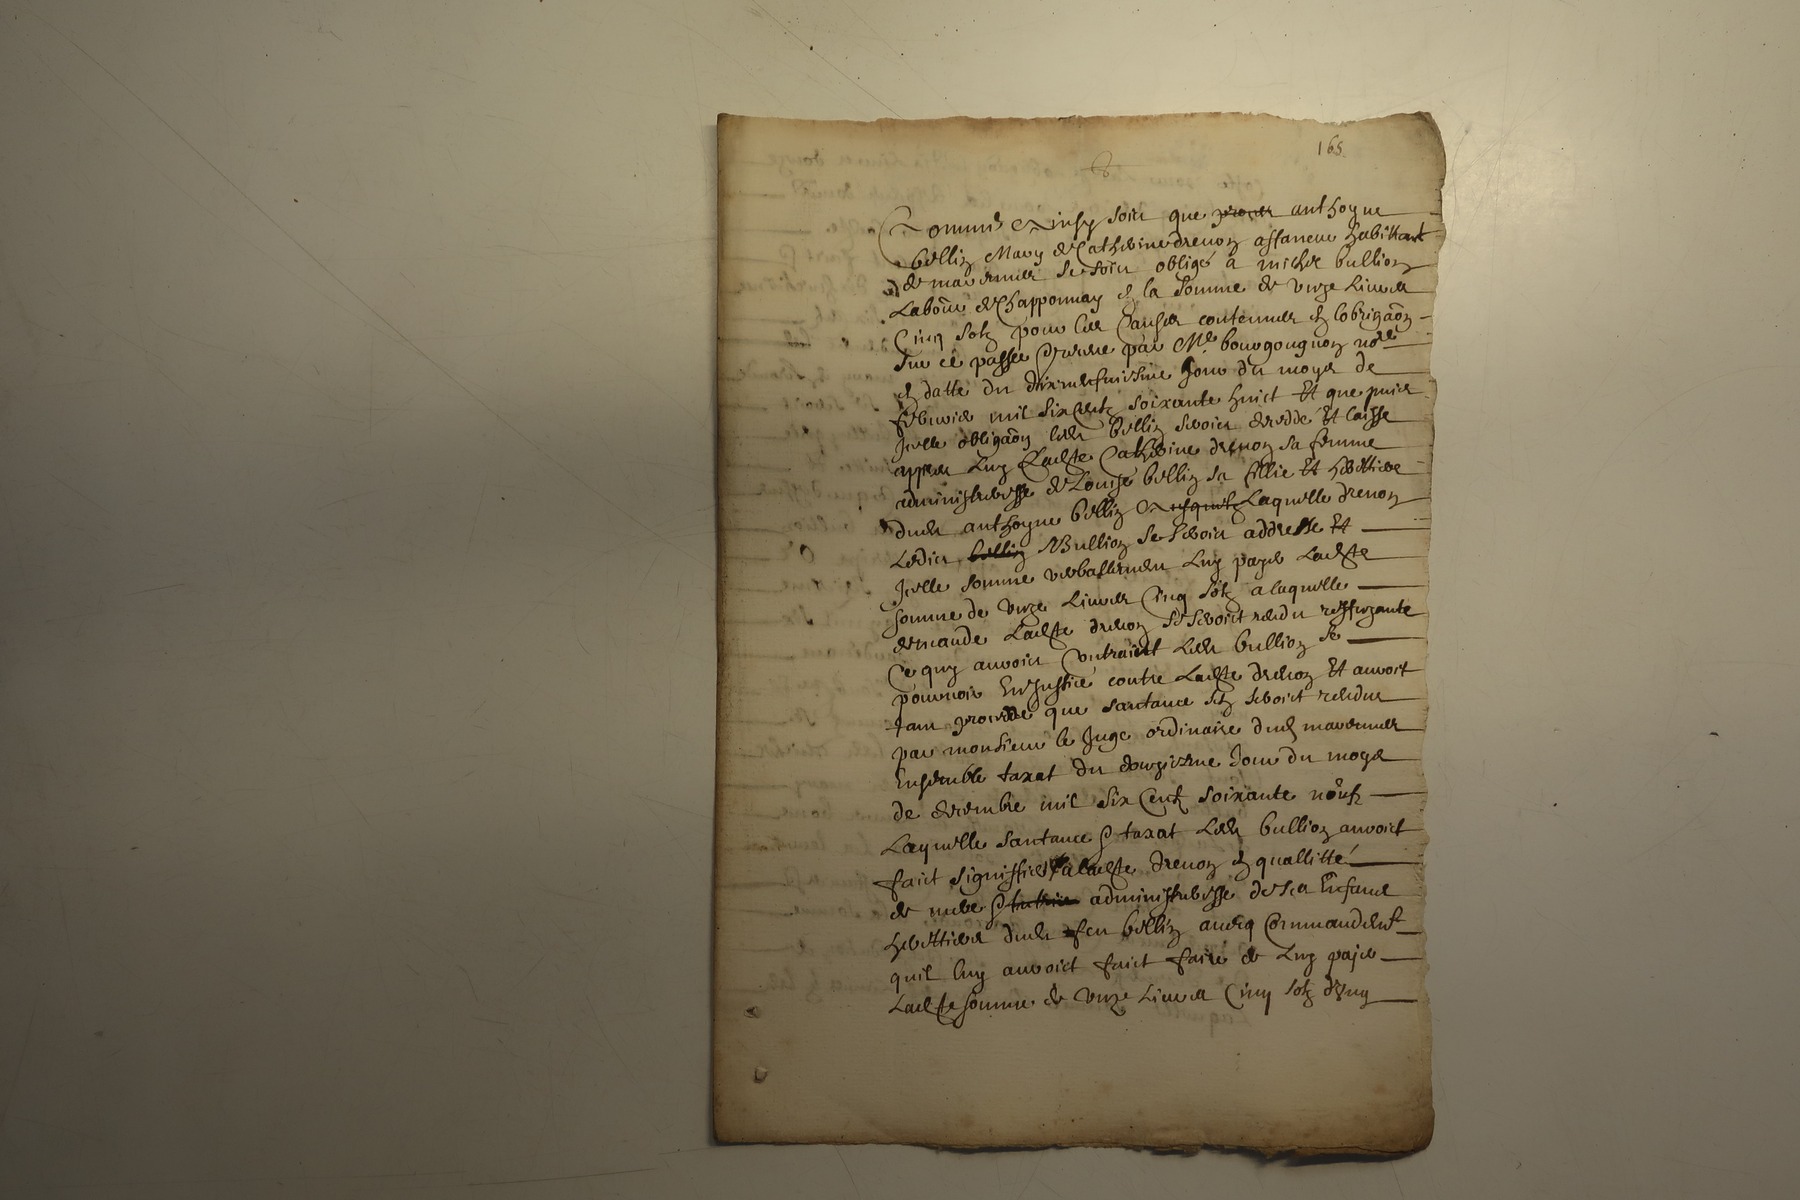 165
Comme Ainsy soit que anthoyne
bellin Mary de Catherine drevon affaneur habittant
de marennes se soict obligé a michel bullion
Labour de Chapponnay en la somme de unze Livres
Cinq solz pour les causes contenues en lobligaon
sur ce passée receue par Me bourgougnon nore
en datte du dixneufviesme Jour du moys de
febvrier mil six centz soixante huict Et que puis
Icelle obligaon led bellin seroict decedé Et laissé
appres luy Ladte Catherine drevon sa femme
administreresse de Louise bellin sa fillie Et herittiere
dud anthoyne bellin Laquelle drevon
Ledict Bullion se seroict addressé Et
Icelle somme verballement luy payer Ladte
somme de unze Livres Cinq solz a laquelle
demande Ladte drevon se seroict rendu reffuzante
Ce quy auroict contrainct led bullion se
pourvoir En Justice contre Ladte drevon Et auroict
tant procedé que santance sen seroict rendue
par monsieur le Juge ordinaire dud marennes
Ensemble taxat du douziesme Jour du moys
de decembre mil six Centz soixante neufz
Laquelle santance & taxat led bullion auroict
faict signiffier a ladte drevon en quallitté
de mere & administreresse de sa Enfant
herittiere dud feu bellin avecq Commandemt
quil luy auroict faict faire de luy payer
Ladte somme de unze Livres Cinq solz